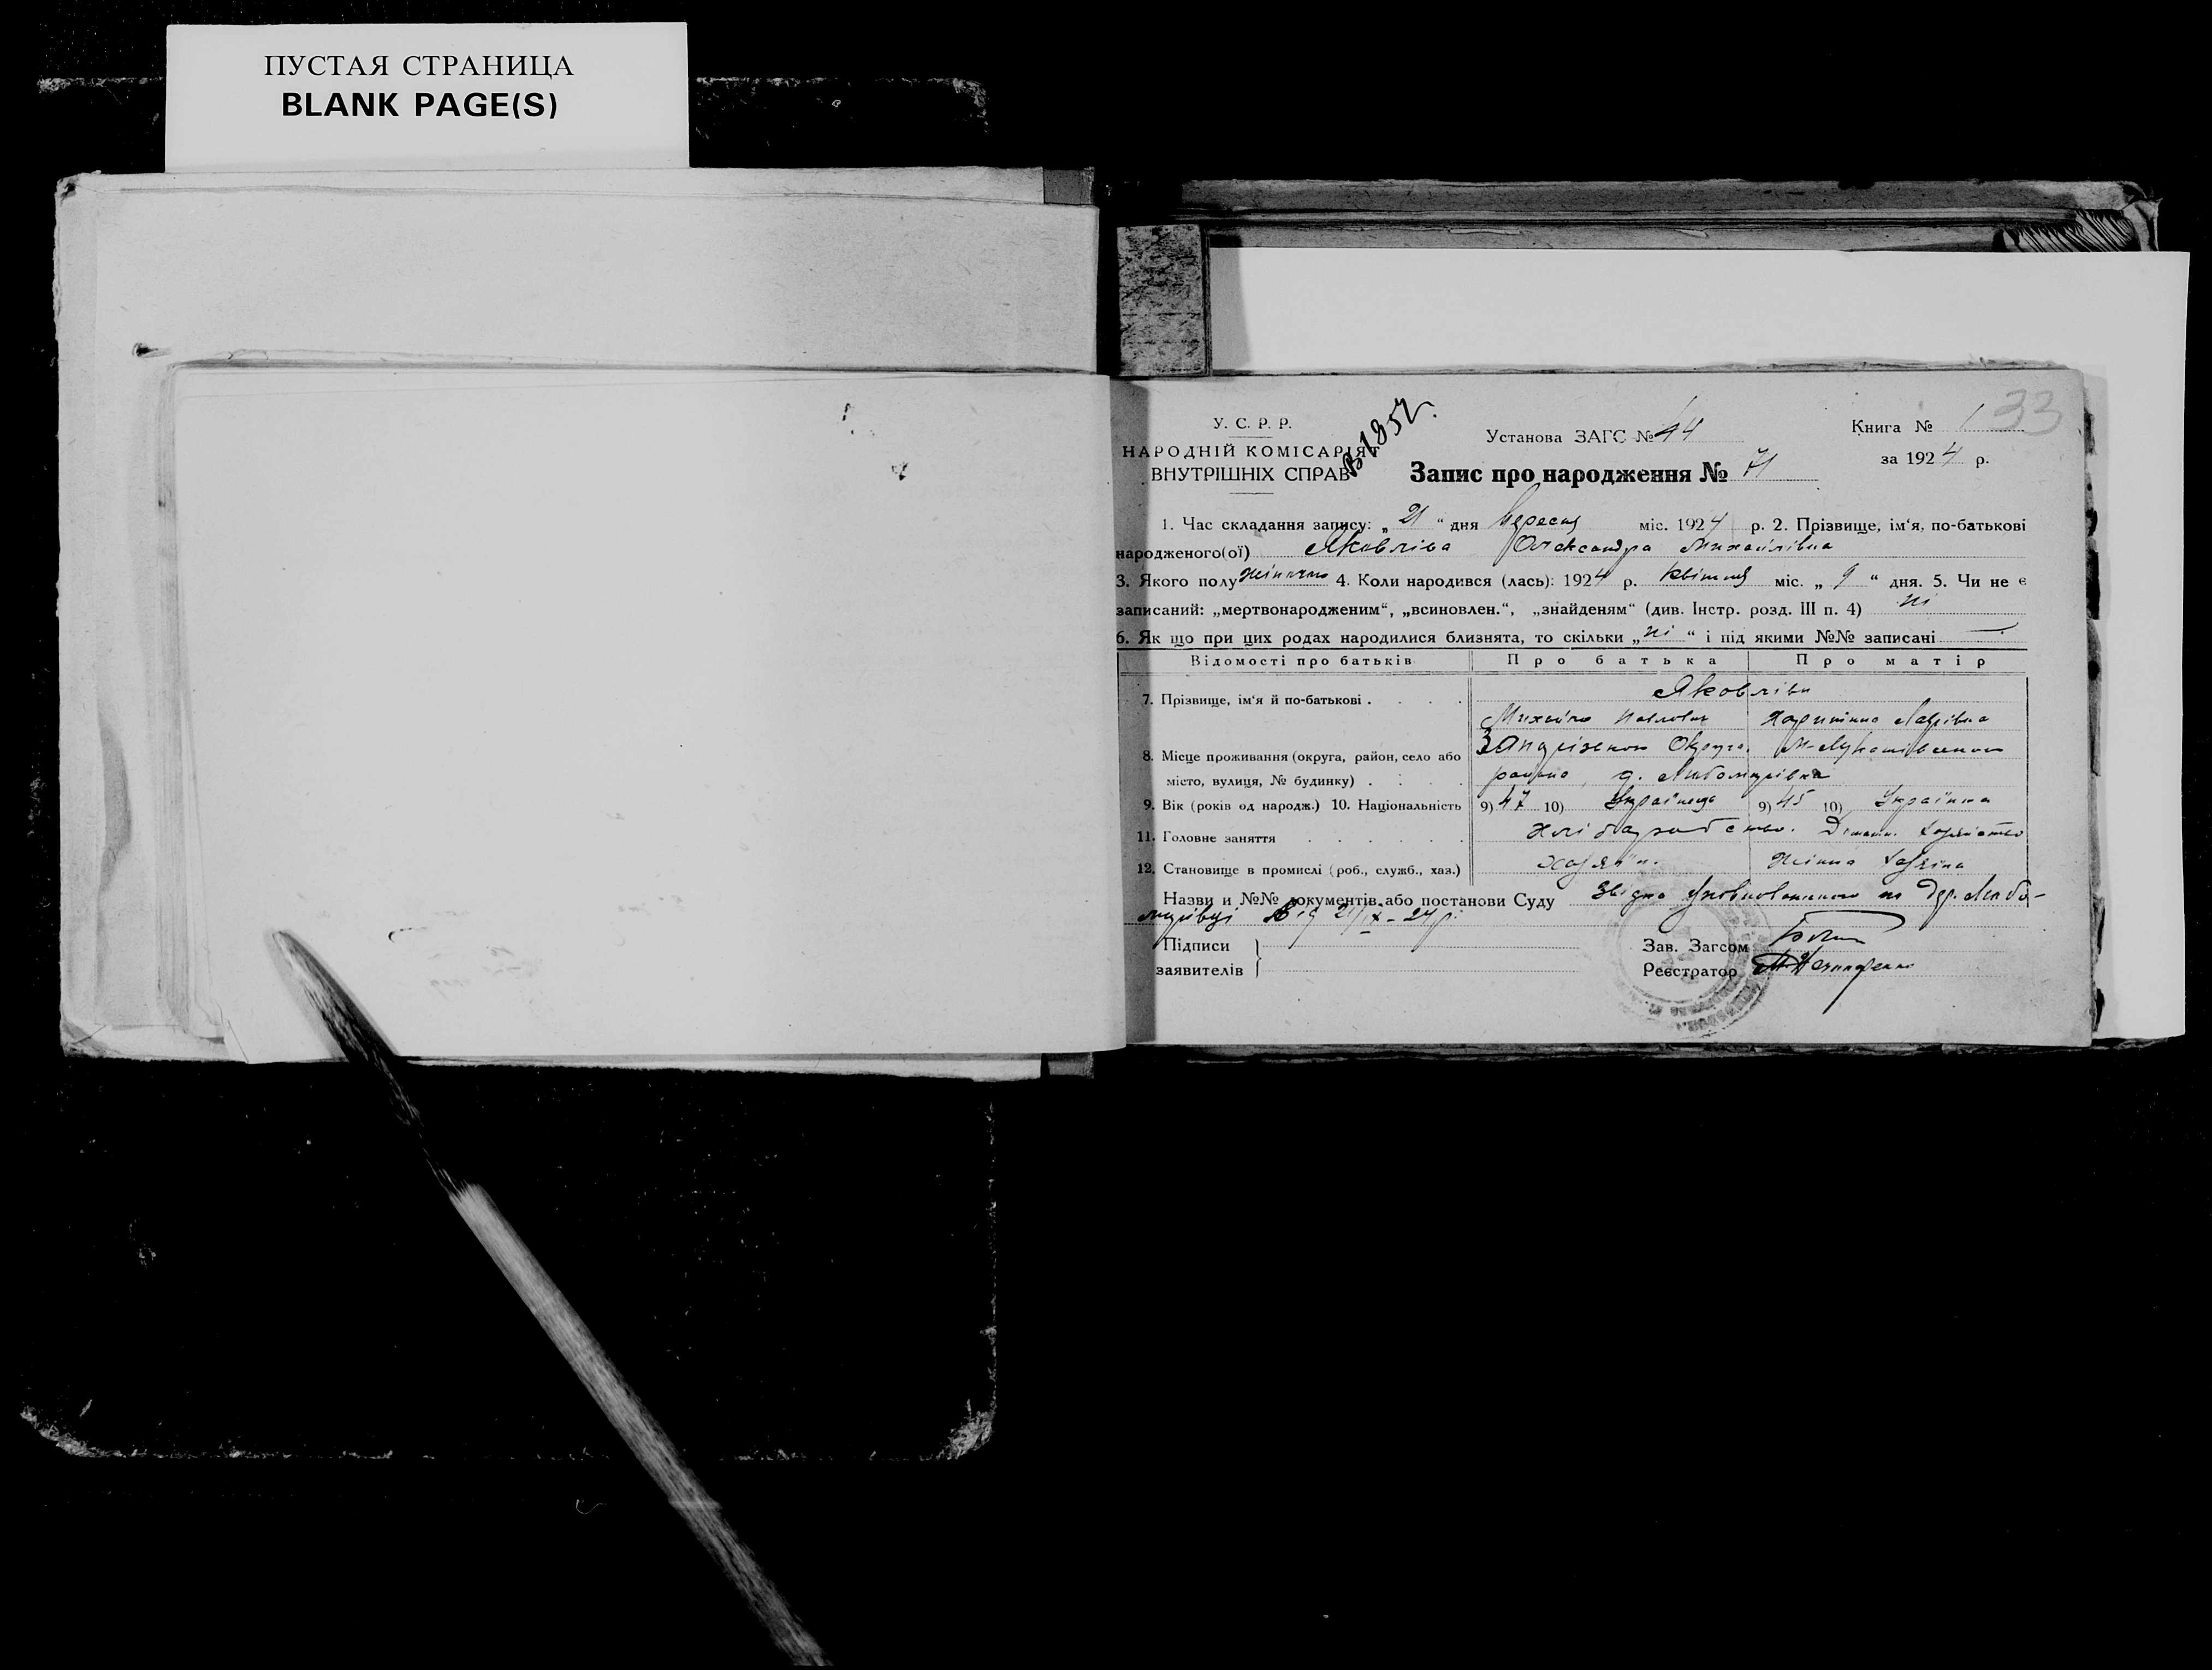 ПУСТАЯ СТРАНИЦА
BLANK PAGE(S)
У. С. Р. Р.
НАРОДНІЙ КОМІСАРІЯТ
ВНУТРІШНІХ СПРАВ
Установа ЗАГС № 44
Книга № 1 33
за 1924 р.
Запис про народження № 71
1. Час складання запису: „ 21 “ дня Вересня міс. 1924 р. 2. Прізвище, ім‘я, по-батькові
народженого(ої) Яковліва Олександра Михайлівна
3. Якого полу жіночно 4. Коли народився (лась): 1924 р. квітня міс. „ 9 “ дня. 5. Чи не є
записаний: „мертвонародженим“, „всиновлен.“, „знайденям“ (див. Інстр. розд. III п. 4) ні
6. Як що при цих родах народилися близнята, то скільки „ ні “ і під якими №№ записані —
Відомості про батьків Про батька Про матір
7. Прізвище, ім‘я й по-батькові . . . . Яковліви
Михайло Павлович
8. Місце проживання (округа, район, село або Округа
місто, вулиця, № будинку) . . . району, д. Любомирівка
9. Вік (років од народж.) 10. Національність 9) 47 10) Українець 9) 45 10) Українка
11. Головне заняття . . . . . . Хліборобство. Домашн.
12. Становище в промислі (роб., служб., хаз.) Хазяїн. Жінка Хазяїна
Назви и №№ документів або постанови Суду
від 21/IX-24 р.
Підписи
заявителів
Зав. Загсом
Реєстратор